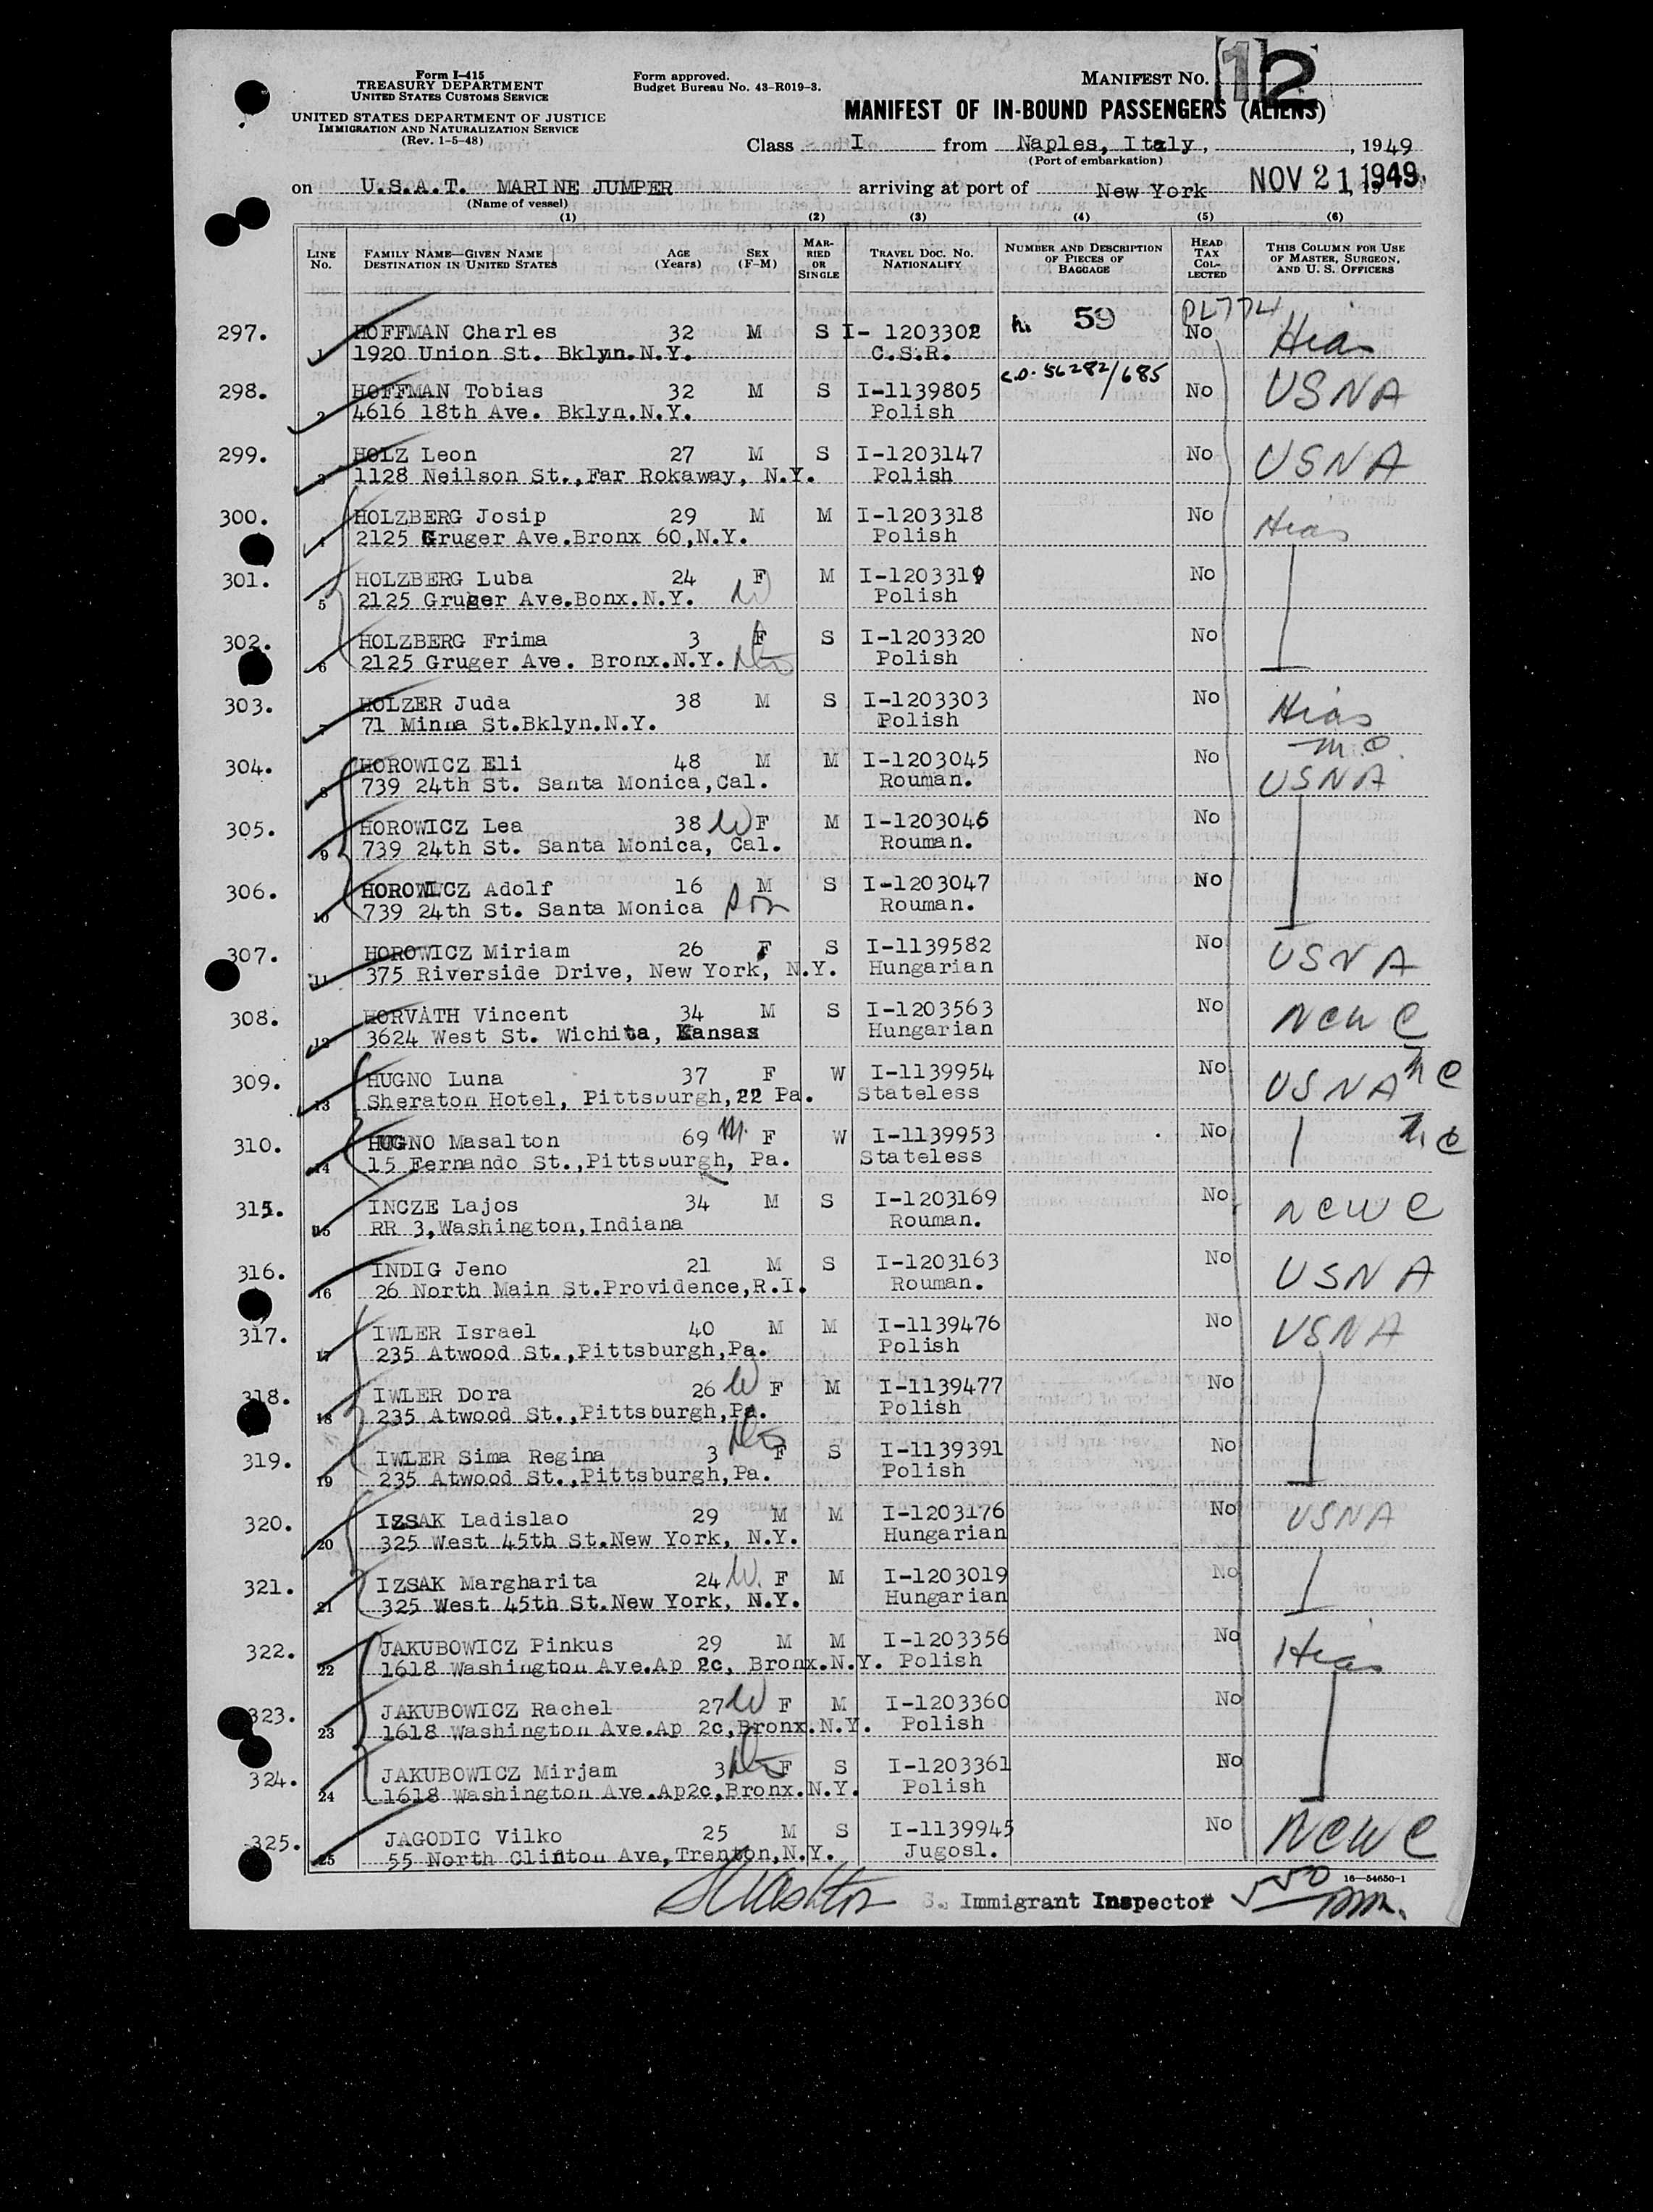 Form I-415
TREASURY DEPARTMENT
UNITED STATES CUSTOMS SERVICE
UNITED STATES DEPARTMENT OF JUSTICE
IMMIGRATION AND NATURALIZATION SERVICE
(Rev. 1-5-48)
Form approved.
Budget Bureau No. 43-R019-3.
MANIFEST NO. 12
MANIFEST OF IN-BOUND PASSENGERS (ALIENS)
Class I from Naples, Italy, , 1949
(Port of embarkation)
on U.S.A.T. MARINE JUMPER arriving at port of New York NOV 21 1949
(Name of vessel)
(1) (2) (3) (4) (5) (6)
LINE No. FAMILY NAME—GIVEN NAME DESTINATION IN UNITED STATES AGE (Years) SEX (F-M) MARRIED OR SINGLE TRAVEL DOC. NO. NATIONALITY NUMBER AND DESCRIPTION OF PIECES OF BAGGAGE HEAD TAX COLLECTED THIS COLUMN FOR USE OF MASTER, SURGEON, AND U. S. OFFICERS
59 PL774
297. HOFFMAN Charles 32 M S I- 1203302 No Hias
1 1920 Union St. Bklyn.N.Y. C.S.R.
C.O. 56282/685
298. HOFFMAN Tobias 32 M S I-1139805 No USNA
2 4616 18th Ave. Bklyn.N.Y. Polish
299. HOLZ Leon 27 M S I-1203147 No USNA
3 1128 Neilson St.,Far Rokaway, N.Y. Polish
300. HOLZBERG Josip 29 M M I-1203318 No Hias
4 2125 Gruger Ave.Bronx 60,N.Y. Polish
301. HOLZBERG Luba 24 F M I-1203319 No
5 2125 Gruger Ave.Bonx.N.Y. W Polish
302. HOLZBERG Frima 3 F S I-1203320 No
6 2125 Gruger Ave. Bronx.N.Y. Polish
303. HOLZER Juda 38 M S I-1203303 No Hias
7 71 Minna St.Bklyn.N.Y. Polish
304. HOROWICZ Eli 48 M M I-1203045 No USNA
8 739 24th St. Santa Monica,Cal. Rouman.
305. HOROWICZ Lea 38 W F M I-1203046 No
9 739 24th St. Santa Monica, Cal. Rouman.
306. HOROWICZ Adolf 16 M S I-1203047 No
10 739 24th St. Santa Monica son Rouman.
307. HOROWICZ Miriam 26 F S I-1139582 No USNA
11 375 Riverside Drive, New York, N.Y. Hungarian
308. HORVATH Vincent 34 M S I-1203563 No NCWC
12 3624 West St. Wichita, Kansas Hungarian
309. HUGNO Luna 37 F W I-1139954 No USNA
13 Sheraton Hotel, Pittsburgh,22 Pa. Stateless
310. HUGNO Masalton 69 M. F W I-1139953 No
14 15 Fernando St.,Pittsburgh, Pa. Stateless
315. INCZE Lajos 34 M S I-1203169 No NCWC
15 RR 3,Washington,Indiana Rouman.
316. INDIG Jeno 21 M S I-1203163 No USNA
16 26 North Main St.Providence,R.I. Rouman.
317. IWLER Israel 40 M M I-1139476 No USNA
17 235 Atwood St.,Pittsburgh,Pa. Polish
318. IWLER Dora 26 W F M I-1139477 No
18 235 Atwood St.,Pittsburgh,Pa. Polish
319. IWLER Sima Regina 3 F S I-1139391 No
19 235 Atwood St.,Pittsburgh,Pa. Polish
320. IZSAK Ladislao 29 M M I-1203176 No USNA
20 325 West 45th St.New York, N.Y. Hungarian
321. IZSAK Margharita 24 W. F M I-1203019 No
21 325 West 45th St.New York, N.Y. Hungarian
322. JAKUBOWICZ Pinkus 29 M M I-1203356 No Hias
22 1618 Washington Ave.Ap 2c, Bronx.N.Y. Polish
323. JAKUBOWICZ Rachel 27 W F M I-1203360 No
23 1618 Washington Ave.Ap 2c,Bronx.N.Y. Polish
324. JAKUBOWICZ Mirjam 3 F S I-1203361 No
24 1618 Washington Ave.Ap2c,Bronx.N.Y. Polish
325. JAGODIC Vilko 25 M S I-1139945 No NCWC
25 55 North Clinton Ave,Trenton,N.Y. Jugosl.
16—54650-1
S. Immigrant Inspector